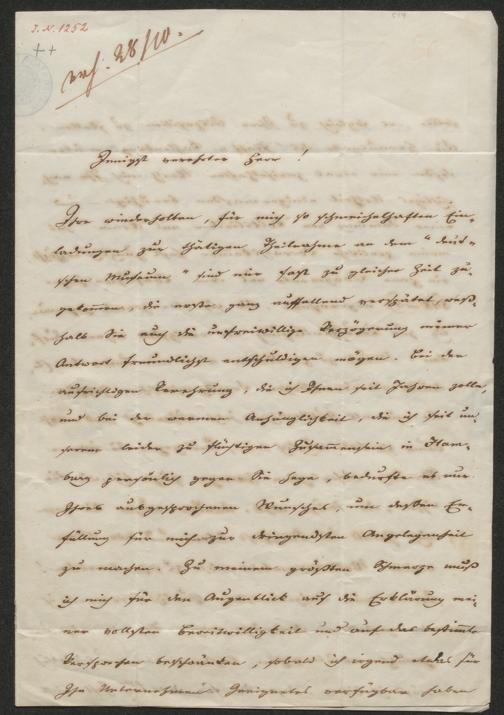 J. N. 1252
++
28/10.
514
Innigst verehrter Herr!
Ihre wiederholten, für mich so schmeichelhaften Ein-
ladungen zur thätigen Theilnahme an dem "deut-
schen Museum" sind mir fast zu gleicher Zeit zu-
gekommen, die erste ganz auffallend verspätet, weß-
halb Sie auch die unfreiwillige Verzögerung meiner
Antwort freundlichst entschuldigen mögen. Bei der
aufrichtigen Verehrung, die ich Ihnen seit Jahren zolle,
und bei der warmen Anhänglichkeit, die ich seit un-
serem leider zu flüchtigen Zusammensein in Ham-
burg persönlich gegen Sie hege, bedurfte es nur
Ihres ausgesprochenen Wunsches, um dessen Er-
füllung für mich zur dringendsten Angelegenheit
zu machen. Zu meinem größten Schmerze muß
ich mich für den Augenblick auf die Erklärung mei-
ner vollsten Bereitwilligkeit und auf das bestimmte
Versprechen beschränken, sobald ich irgend etwas für
Ihr Unternehmen Geeignetes verfügbar haben